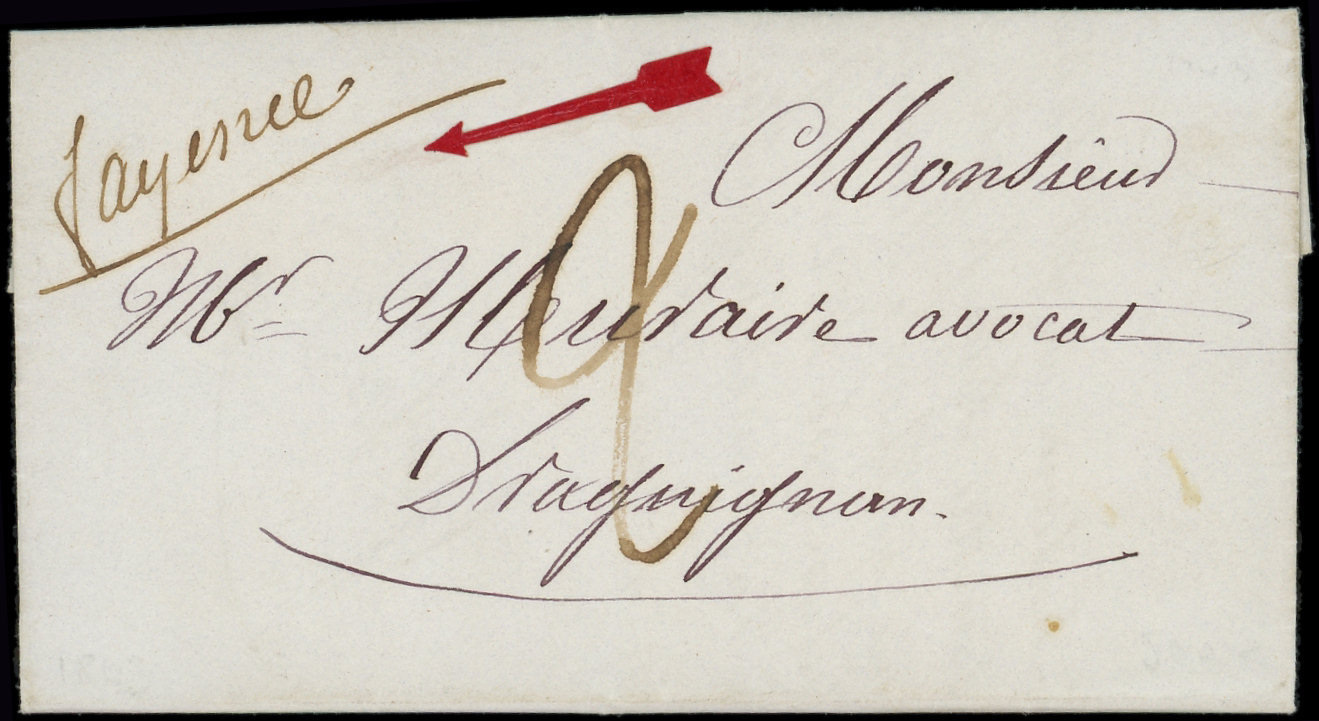 fayence
Monsieur
Mr Muraire avocat
Draguignan.
2